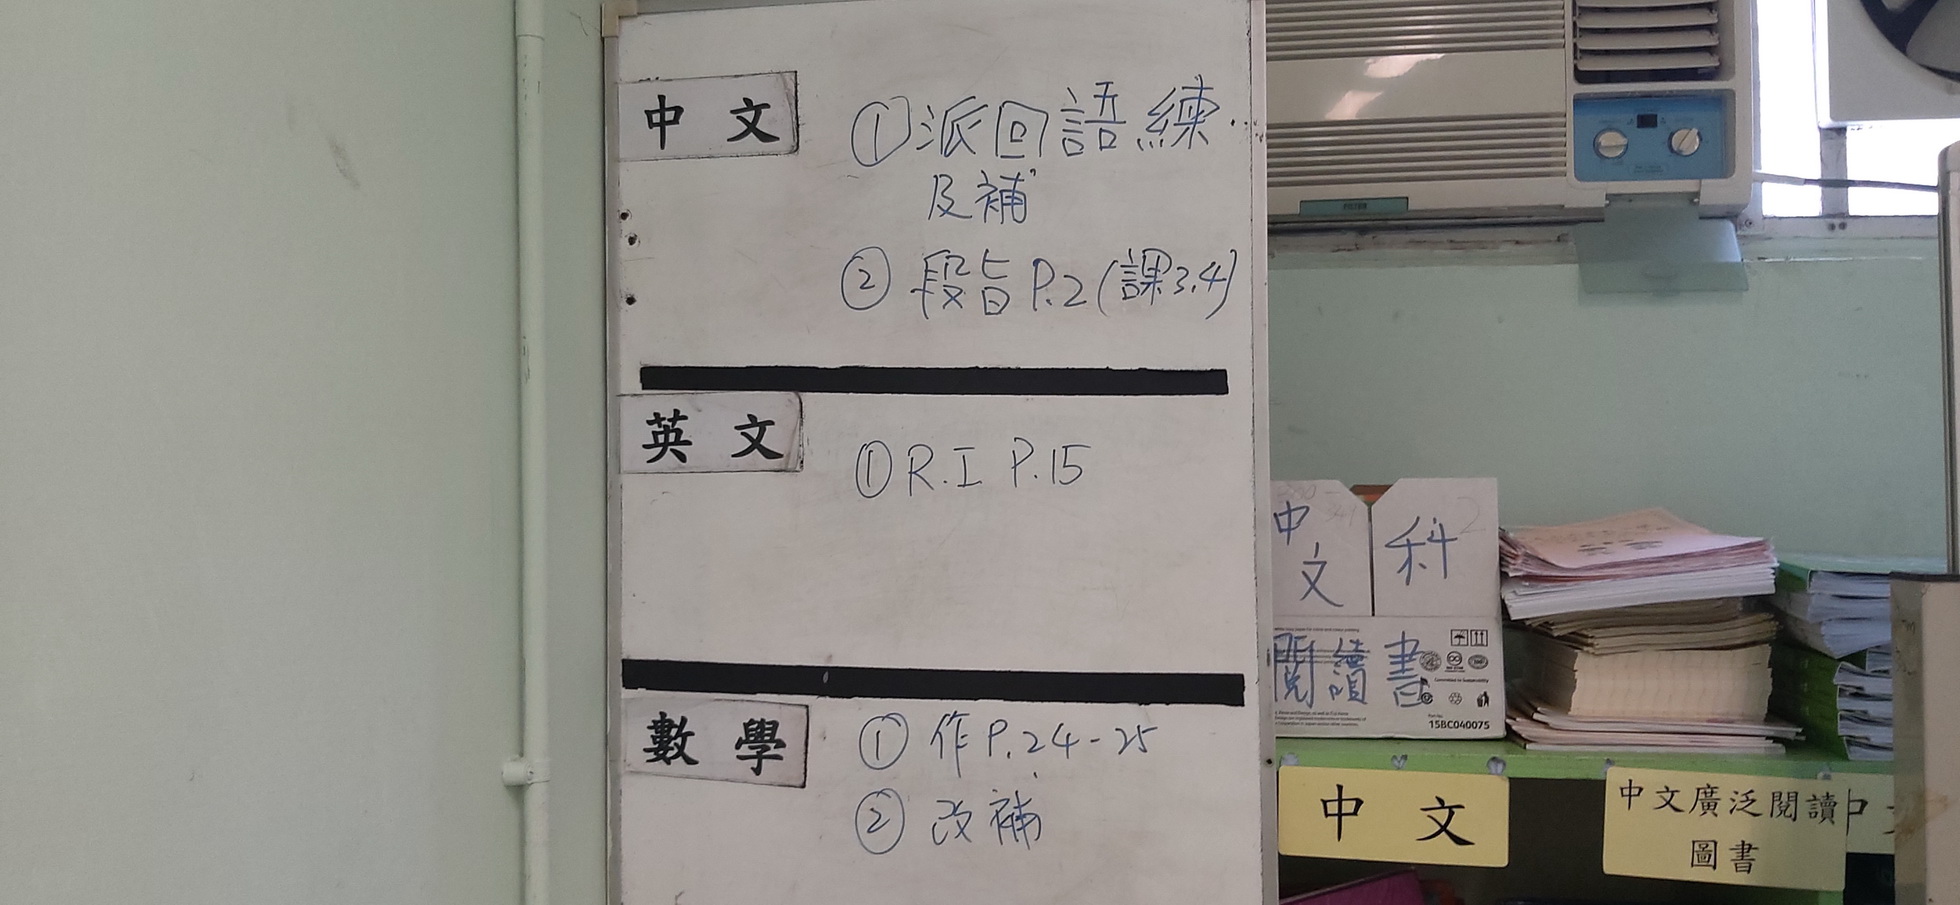 中文
①派回語練
及補
②段旨P.2(課3.4)
英文
①R.I P.15
數學
①作P.24-25
②改補
中文科
閱讀書
15BC040075
中文
中文廣泛閱讀
圖書
中